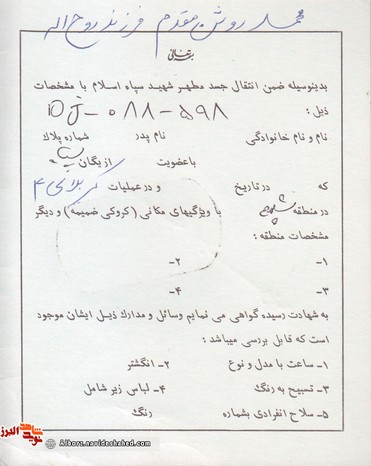 محمد روشن مقدم فرزند روح اله
بدینوسیله ضمن انتقال جسد مطهر شهید سپاه اسلام با مشخصات
ذیل : IOJ-۰۸۸-۵۹۸
نام و نام خانوادگی نام پدر شماره پلاک
باعضویت از یگان سپاه
که در تاریخ و در عملیات کربلای ۴
در منطقه شلمچه با ویژگیهای مکانی (کروکی ضمیمه) و دیگر
مشخصات منطقه :
۱- ۲-
۳- ۴-
به شهادت رسیده گواهی می نمایم وسائل و مدارک ذیل ایشان موجود
است که قابل بررسی میباشد :
۱- ساعت با مدل و نوع ۲- انگشتر
۳- تسبیح به رنگ ۴- لباس زیر شامل
۵- سلاح انفرادی بشماره رنگ
شاهد نوید البرز
Alborz.navideshahed.com